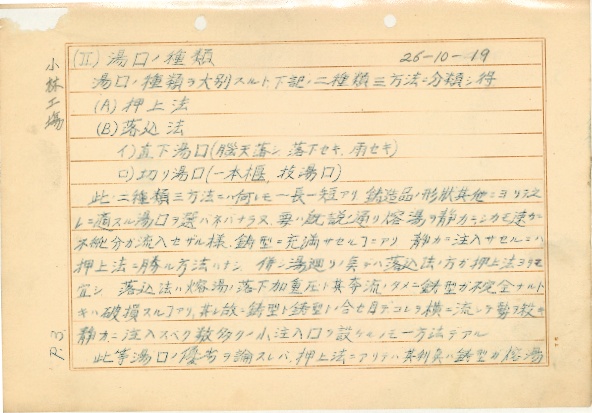 小林工場
(II) 湯口ノ種類 26-10-19
湯口ノ種類ヲ大別スルト下記ノ二種類三方法ニ分類シ得
(A) 押上法
(B) 落込法
イ) 直下湯口(脳天落シ 落下セキ、雨セキ)
ロ) 切リ湯口(一本堰、枝湯口)
此ノ二種類三方法ニハ何レモ一長一短アリ 鋳造品ノ形状其他ニヨリ之
レニ適スル湯口ヲ選バネバナラヌ 既説ノ通リ熔湯ヲ静カニシカモ速カニ
不純分ガ流入セザル様、鋳型ニ充満サセルコトニアリ 静カニ注入サセルニハ
押上法ニ勝ル方法ハナシ、併シ湯廻リノ点デハ落込法ノ方ガ押上法ヨリモ
宜シ 落込法ハ熔湯ノ落下加重圧ト其奔流ノタメニ鋳型ガ不完全ナルト
キハ破損スルコトアリ、其レ故ニ鋳型ト鋳型ノ合セ目デコレヲ横ニ流シテ勢ヲ殺キ
静カニ注入スベク数多クノ小注入口ヲ設ケルノモ一方法デアル
此等湯口ノ優劣ヲ論スレバ、押上法ニアリテハ其利点ハ鋳型ガ熔湯
P.3.